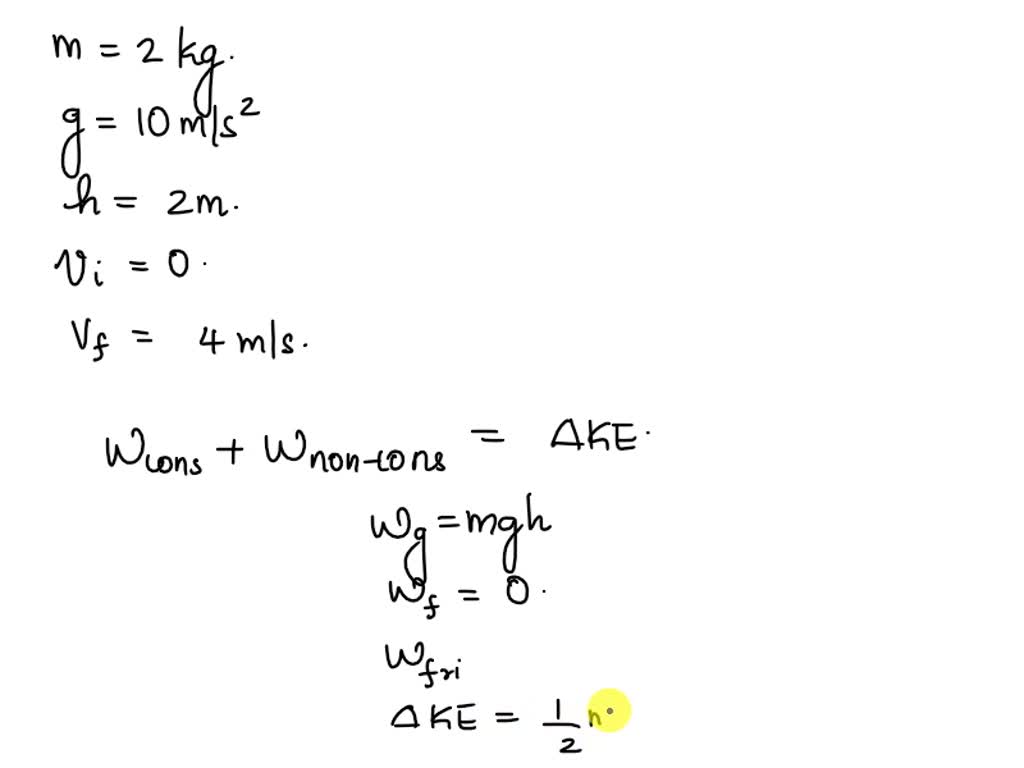 m = 2 kg.
g = 10 m/s²
h = 2m.
Vi = 0.
Vf = 4 m/s.
Wcons + Wnon-cons = ΔKE.
Wg = mgh
Wf = 0.
Wfri
ΔKE = 1/2